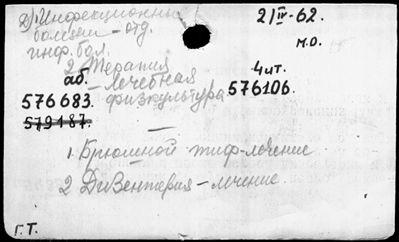 2) Инфекционные 21 IV-62.
болезни - отд.
инф. бол. М.О.
2 Терапия
аб. - лечебная 4 ит.
576683. физкультура 576106.
579187.
1. Брюшной тиф - лечение
2 Дизентерия - лечение
Г.Т.